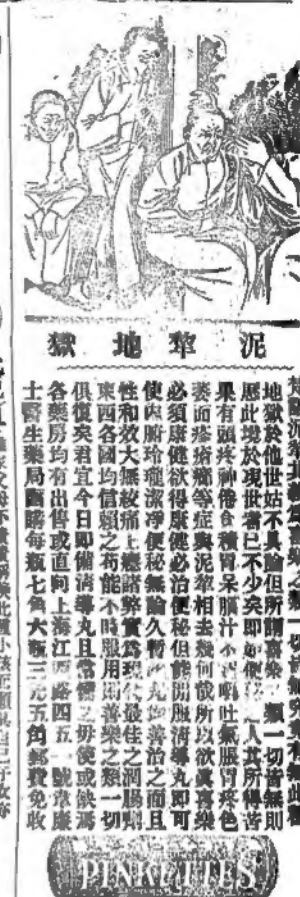 泥犂地獄
泥犂華譯為喜樂之類一切皆無究竟有無此種
地獄於他世姑不具論但所謂喜樂之類一切皆無則
歷此境於現世者已不少矣即如便秘之人其所得苦
果有頭疼神倦食積胃呆腦汁不清嘔吐氣脹胃疼色
萎面疹瘡癤等症與泥犂相去幾何哉所以欲真喜樂
必須康健欲得康健必治便秘但能開服清導丸即可
使內腑玲瓏潔淨便秘無論久暫此丸均善治之而且
性和效大無絞痛上癮諸弊實為現代最佳之潤腸劑
東西各國均信賴之苟能不時服用則喜樂之類一切
俱復矣君宜今日即備清導丸且常備之毋使或缺焉
各藥房均有出售或直向上海江西路四五一號韋廉
士醫生藥局函購每瓶七角大瓶三元五角郵費免收
PINKETTES